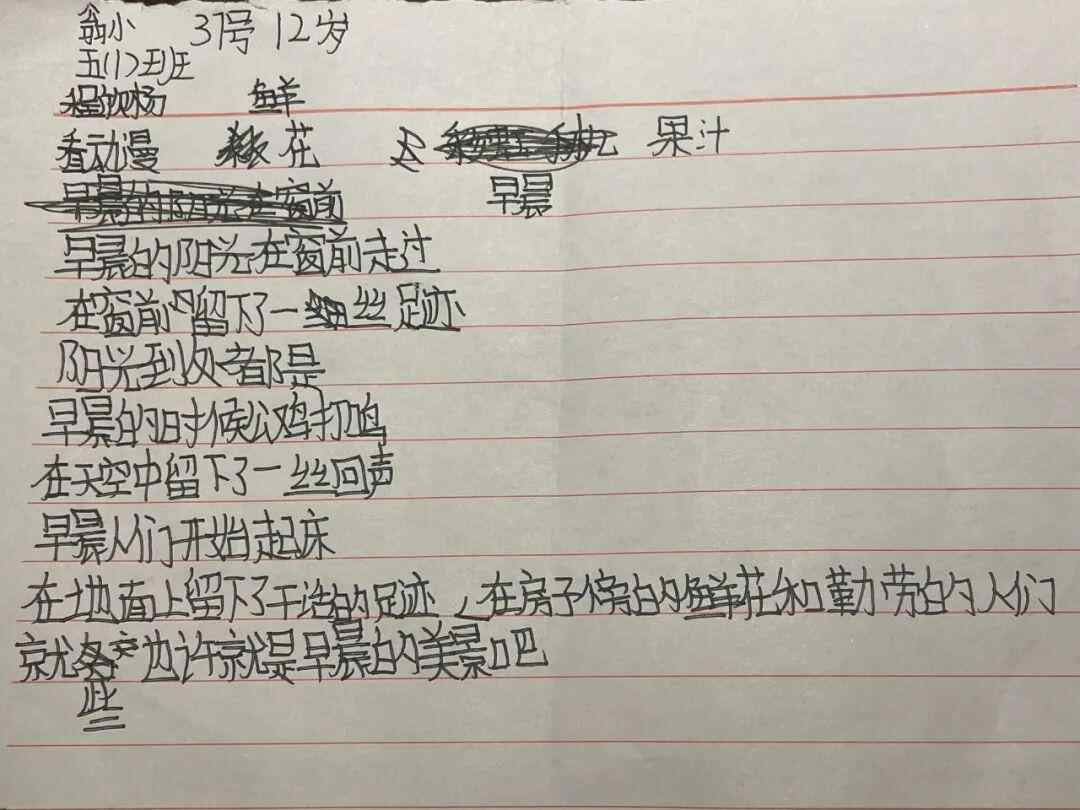 翁小 37号 12岁
五(1)班
程欧杨 鲜
看动漫 花 果汁
早晨的阳光在窗前
早晨
早晨的阳光在窗前走过
在窗前留下了一丝足迹
阳光到处都是
早晨的时候公鸡打鸣
在天空中留下了一丝回声
早晨人们开始起床
在地面上留下了干活的足迹,在房子傍的鲜花和勤劳的人们
就 也许就是早晨的美景吧
些